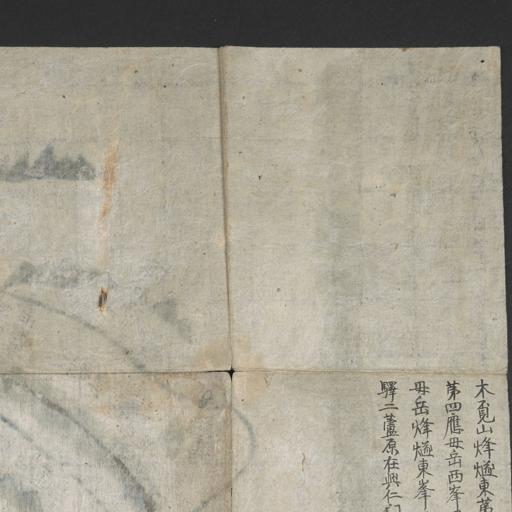 木覓山烽燧東第
第四應毋岳西峯
毋岳烽燧東峯
驛二蘆原在興仁門